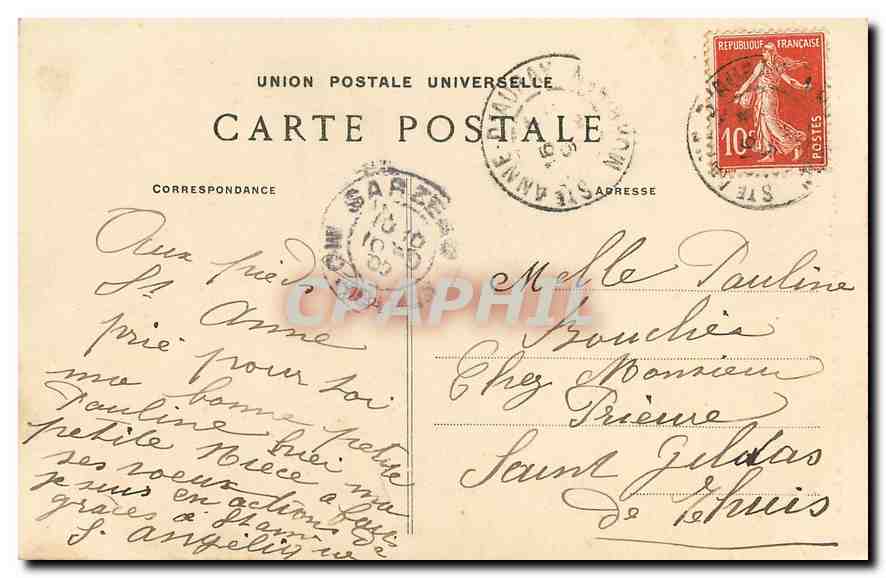 UNION POSTALE UNIVERSELLE
CARTE POSTALE
CORRESPONDANCE
ADRESSE
REPUBLIQUE FRANÇAISE
10c
POSTES
STE ANNE-D'AURAY MORBIHAN
SARZEAU MORBIHAN
CRAPHIL
Aux pieds
St Anne
prie pour toi
ma bonne petite
Pauline
petite niece a ma
ses voeux
je suis en actions de
graces a St Anne
S. Angélique
Melle Pauline
Bouchés
Chez Monsieur
Prieure
Saint Gildas
de Rhuis